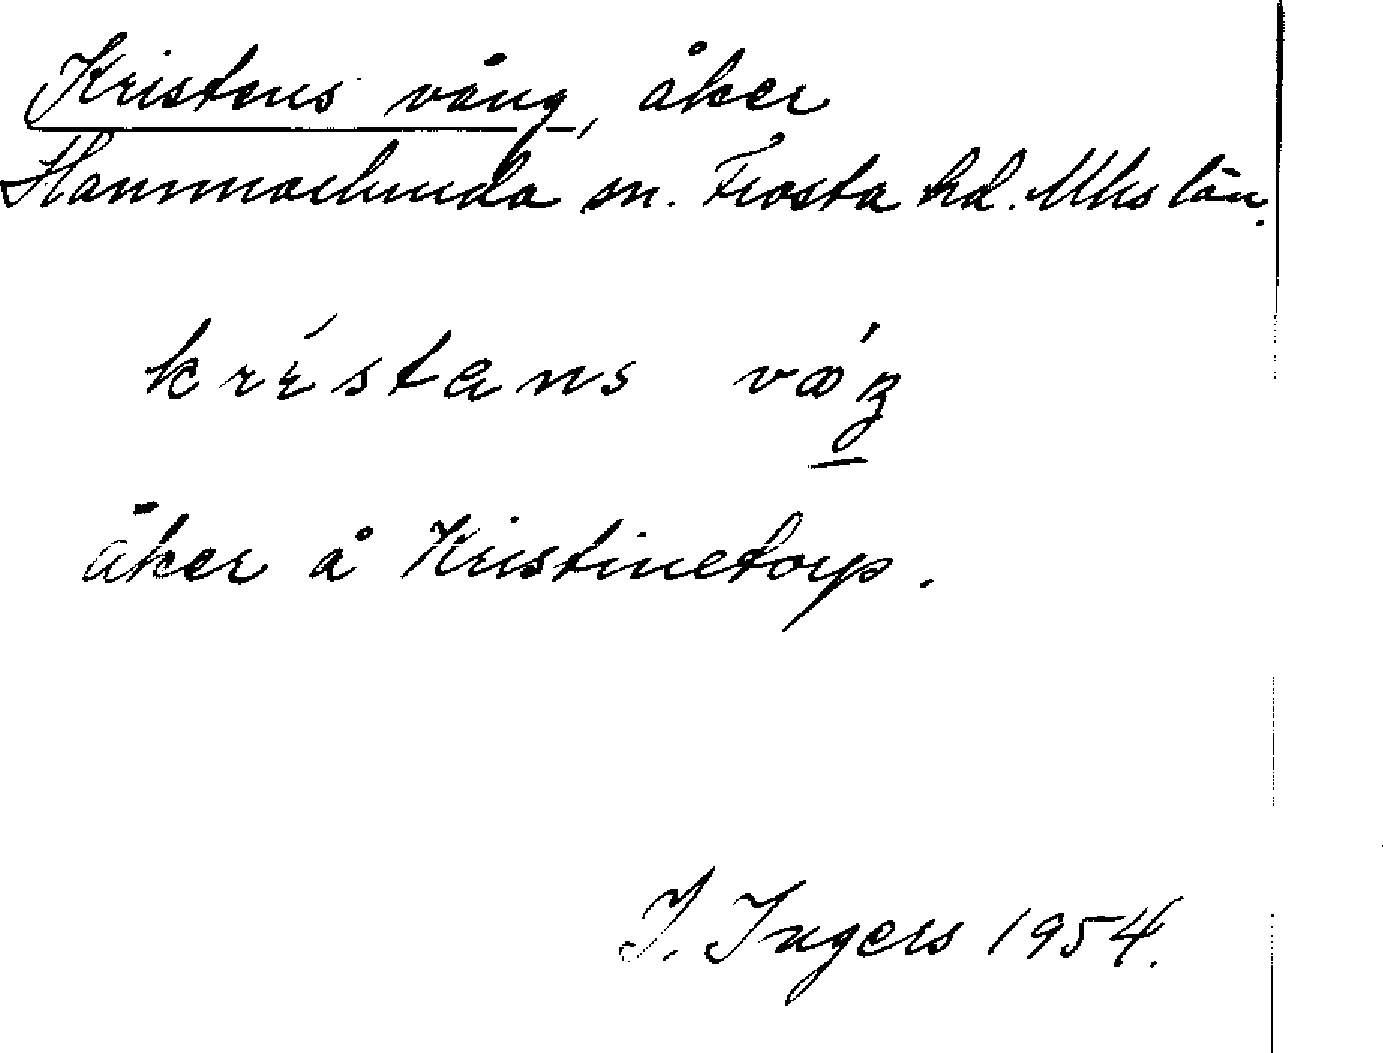 Kristens vång, åker
Hammarlunda sn. Frosta hd. Mhs län.
kréstans váŋ
åker å Kristinetorp.
I. Ingers 1954.